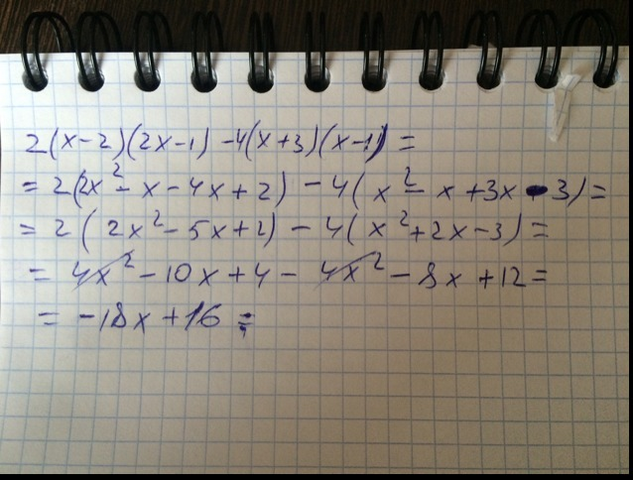 2(x-2)(2x-1) -4(x+3)(x-1) =
= 2(2x² - x - 4x + 2) - 4(x² - x + 3x - 3) =
= 2(2x² - 5x + 2) - 4(x² + 2x - 3) =
= 4x² - 10x + 4 - 4x² - 8x + 12 =
= -18x + 16 =